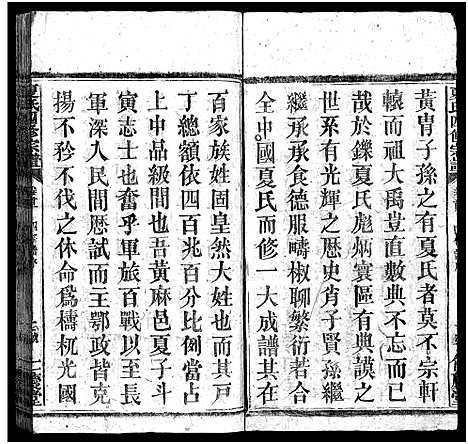 黃胄子孫之有夏氏者莫不宗軒
轅而祖大禹豈直數典不忘而已
哉於鑠夏氏彪炳寰區有典謨之
世系有光輝之歷史肖子賢孫繼
繼承承食德服疇椒聊繁衍若合
全中國夏氏而修一大成譜則於
百家族姓固皇然大姓也而其戶
丁總額依四兆百分比例當占
上中也吾黃麻邑夏子斗
寅志士也奮乎軍旅百戰以至長
軍深入民間歷試主鄂政皆謙
揚不矜不伐之休命爲檮杌光國
夏氏四修宗譜